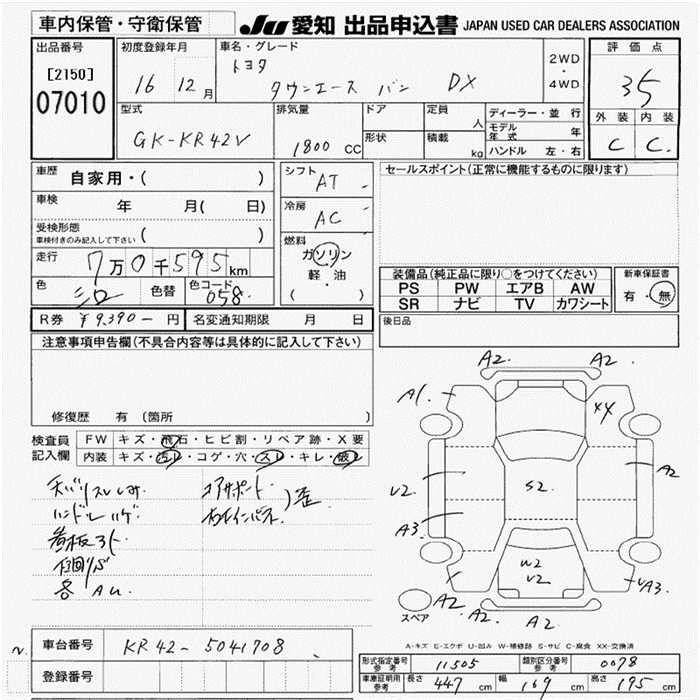 車内保管・守衛保管
JU 愛知 出品申込書 JAPAN USED CAR DEALERS ASSOCIATION
出品番号
[2150]
07010
初度登録年月
16 12月
車名・グレード
トヨタ
タウンエース バン DX
2WD
・
4WD
評価点
35
外装 内装
C C
型式
GK-KR42V
排気量
1800 CC
ドア
形状
定員 人
積載 kg
ディーラー・並行
モデル年式 年
ハンドル 左・右
車歴
自家用・( )
車検
年 月( 日)
受検形態
車検付きのみ記入して下さい
走行
7万0千595km
色
シロ
色替
色コード
058
シフト
AT
冷房
AC
燃料
ガソリン
軽・油
( )
セールスポイント(正常に機能するものに限ります)
装備品(純正品に限り○をつけてください)
PS PW エアB AW
SR ナビ TV カワシート
新車保証書
有・無
R券 ¥9,390- 円 名変通知期限 月 日
後日品
注意事項申告欄(不具合内容等は具体的に記入して下さい)
修復歴 有(箇所 )
検査員
記入欄
FW キズ・飛石・ヒビ割・リペア跡・X要
内装 キズ・汚レ・コゲ・穴・スレ・キレ・破レ
天バリスレシミ
ハンドルハゲ
看板コト
各AU
コアサポート
)歪
A2 A2
A1 XX
U2 S2 A2
A3
W2
U2
A2 A2 A2 UA3
スペア
A-キズ E-エクボ U-凹み W-補修跡 S-サビ C-腐食 XX-交換済
車台番号 KR42-5041708
登録番号
形式指定番号 参考 11505 類別区分番号 参考 0078
車庫証明用 参考 長さ 447 cm 幅 169 cm 高さ 195 cm